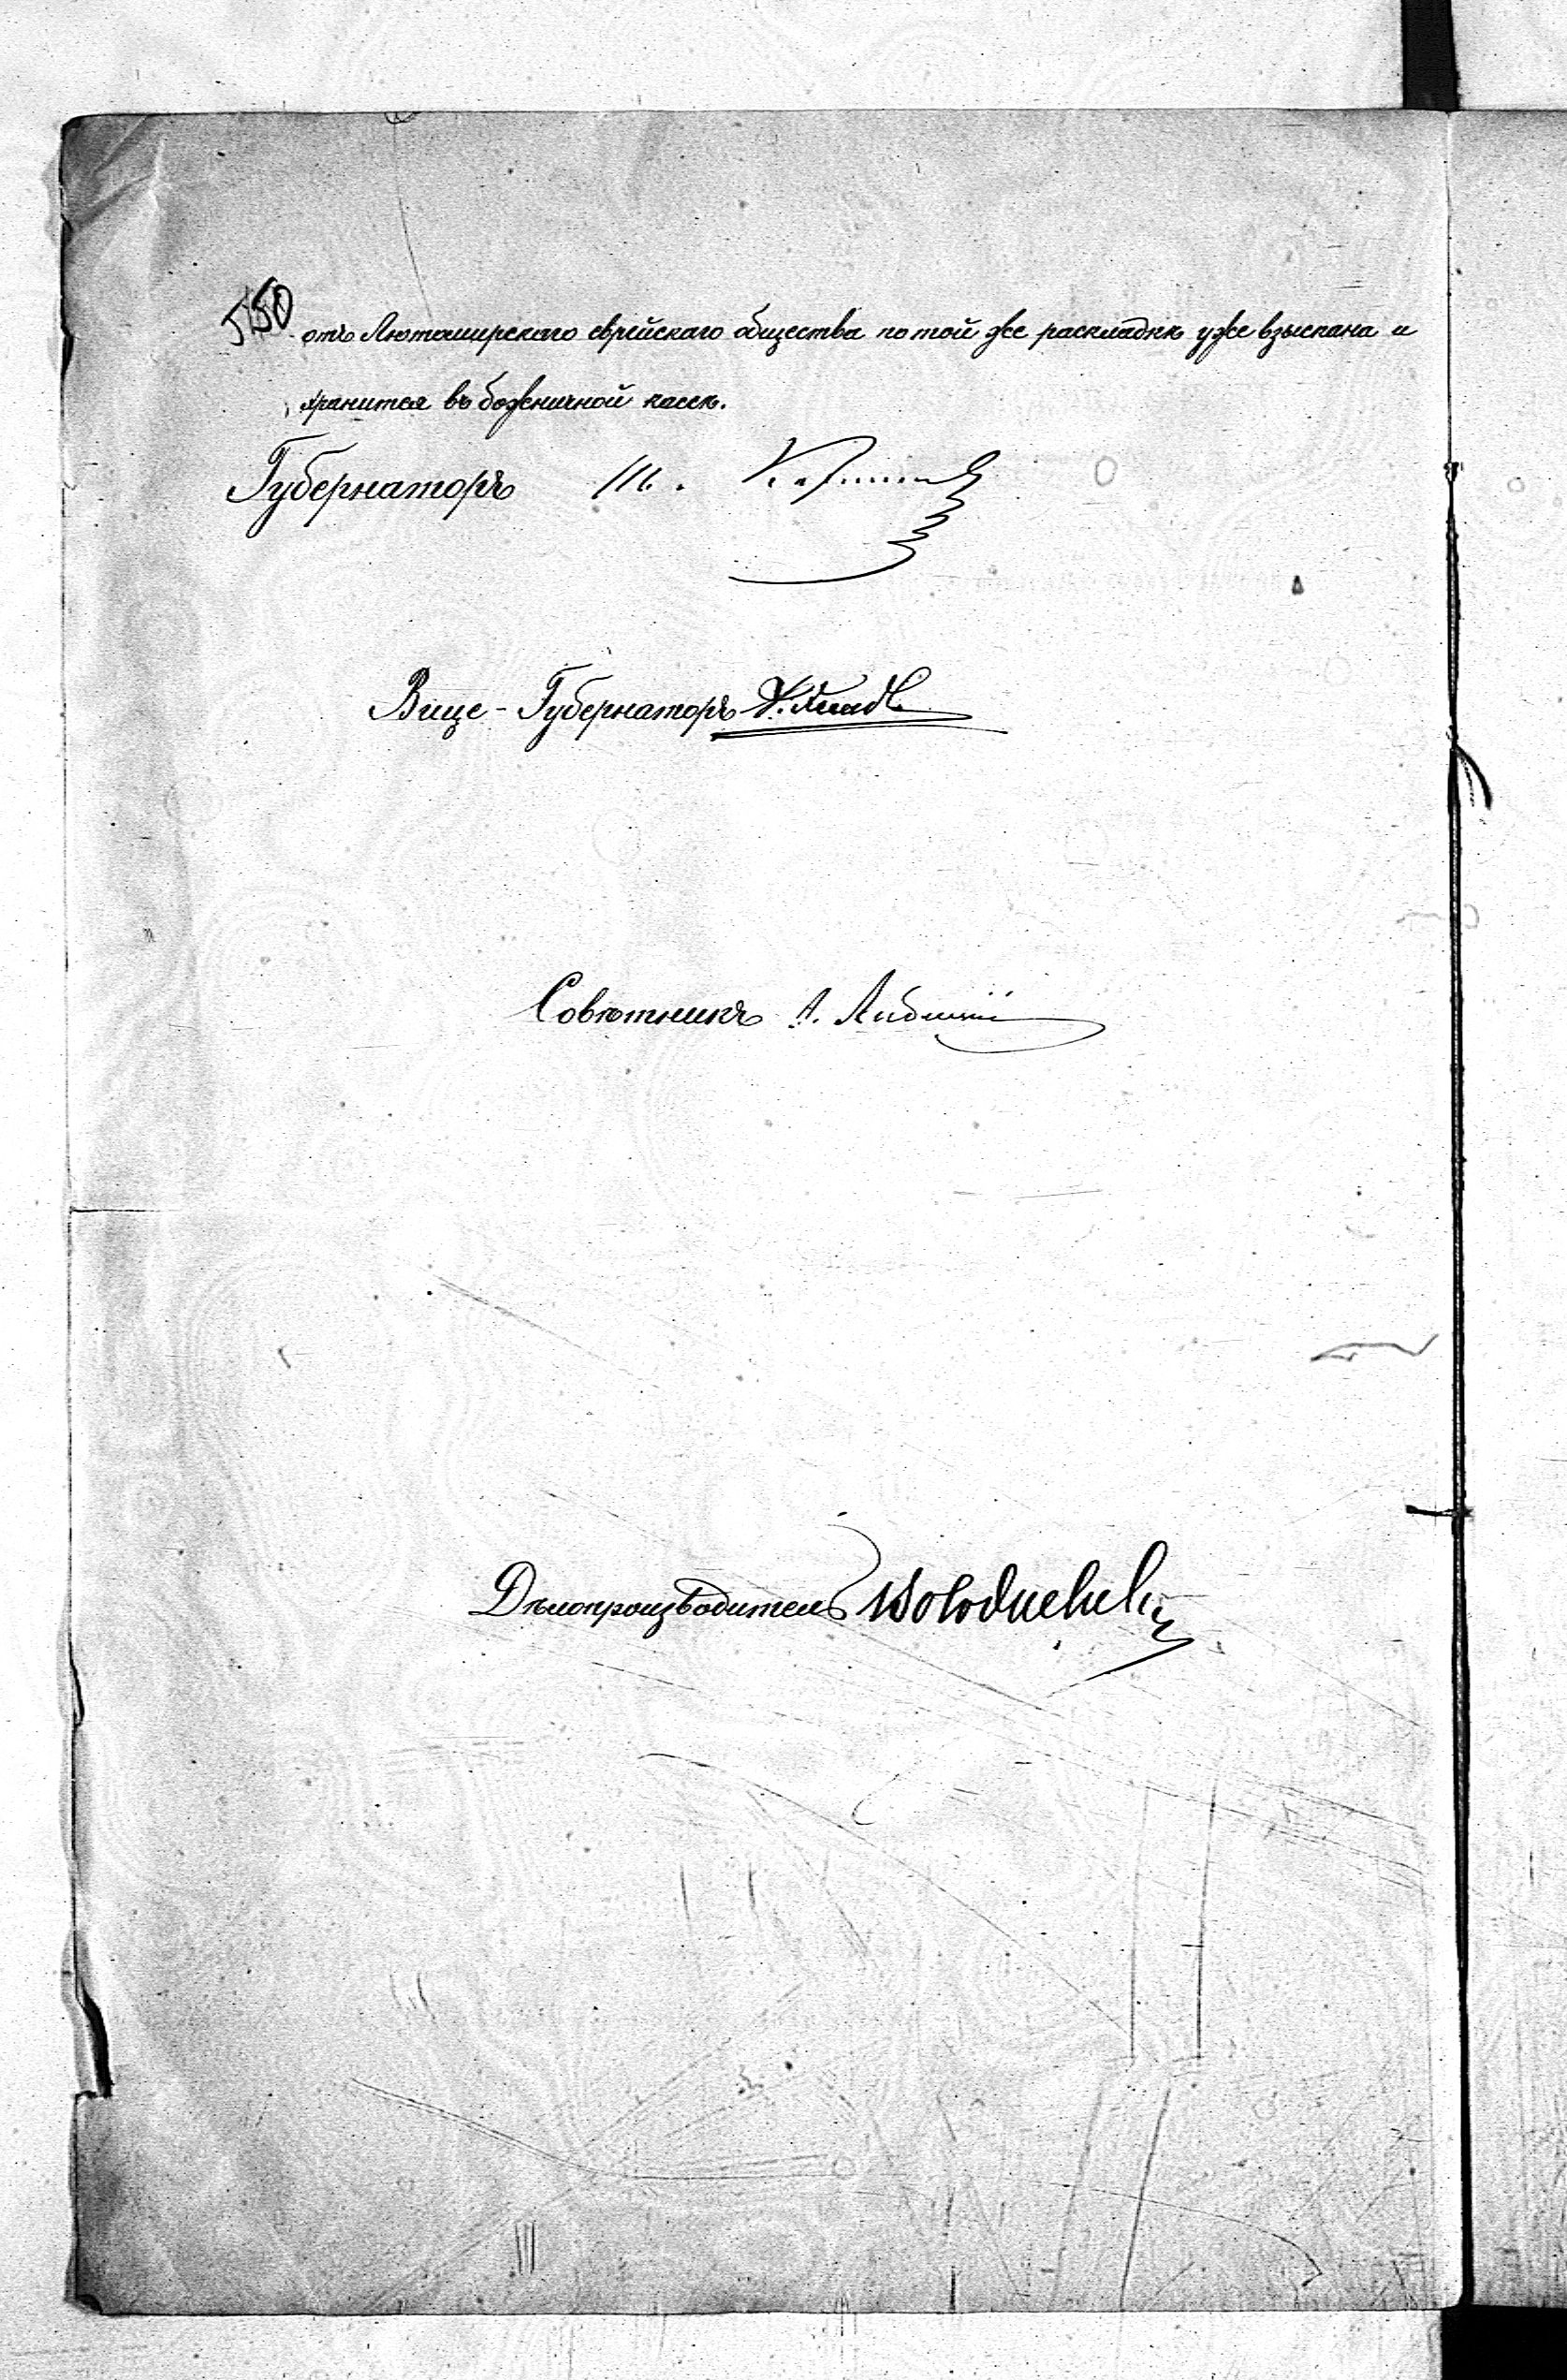 550
отъ Лютомирскаго еврейскаго общества по той же раскладкѣ уже взыскана и
хранится въ божничной кассѣ.
Губернаторъ
Вице-Губернаторъ
Совѣтникъ А.
Дѣлопроизводитель